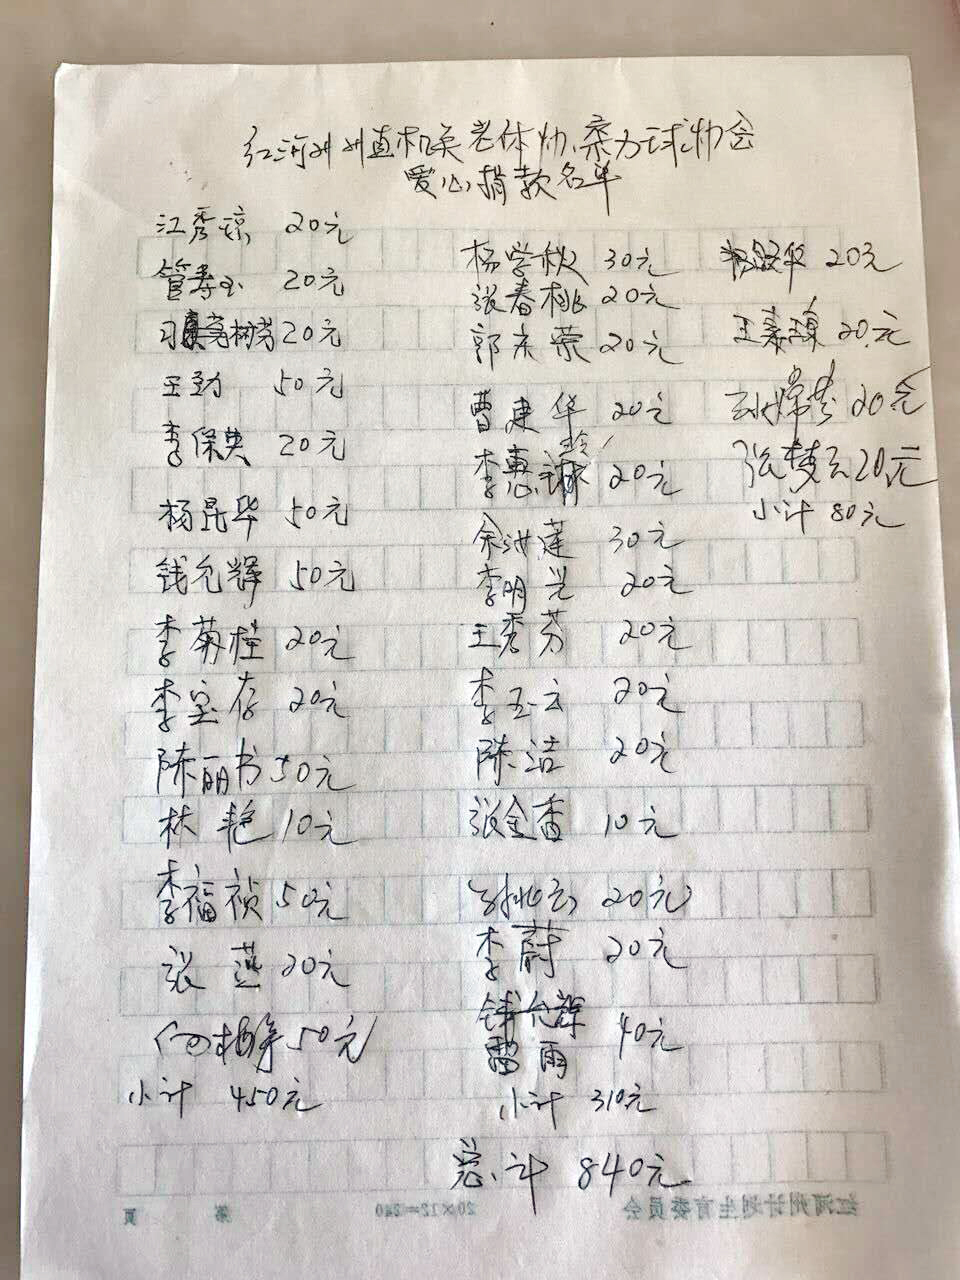 红河州州直机关老体协、柔力球协会
爱心捐款名单
江秀琼 20元
管寿玉 20元
20元
王劲 50元
李保英 20元
杨昆华 50元
钱允辉 50元
李菊桂 20元
李宝存 20元
陈丽书 50元
林艳 10元
李福祯 50元
张燕 20元
50元
小计 450元
杨学秋 30元
张春桃 20元
郭永荣 20元
曹建华 20元
李惠玲 20元
余洪莲 30元
李明兴 20元
王秀芬 20元
李玉云 20元
陈洁 20元
张金香 10元
20元
李蔚 20元
雷雨 40元
小计 310元
华 20元
王嘉琼 20元
20元
张梦云 20元
小计 80元
总计 840元
红河州计划生育委员会
20×12=240
第 页